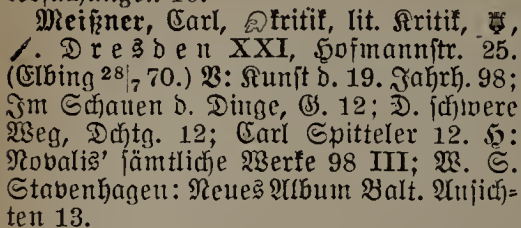 Meißner, Carl, Kritik, lit. Kritik,
Dresden XXI, Hofmannstr. 25.
(Elbing 28|7 70.) V: Kunst d. 19. Jahrh. 98;
Im Schauen d. Dinge, G. 12; D. schwere
Weg, Dchtg. 12; Carl Spitteler 12. H:
Novalis' sämtliche Werke 98 III; W. S.
Stavenhagen: Neues Album Balt. Ansich=
ten 13.